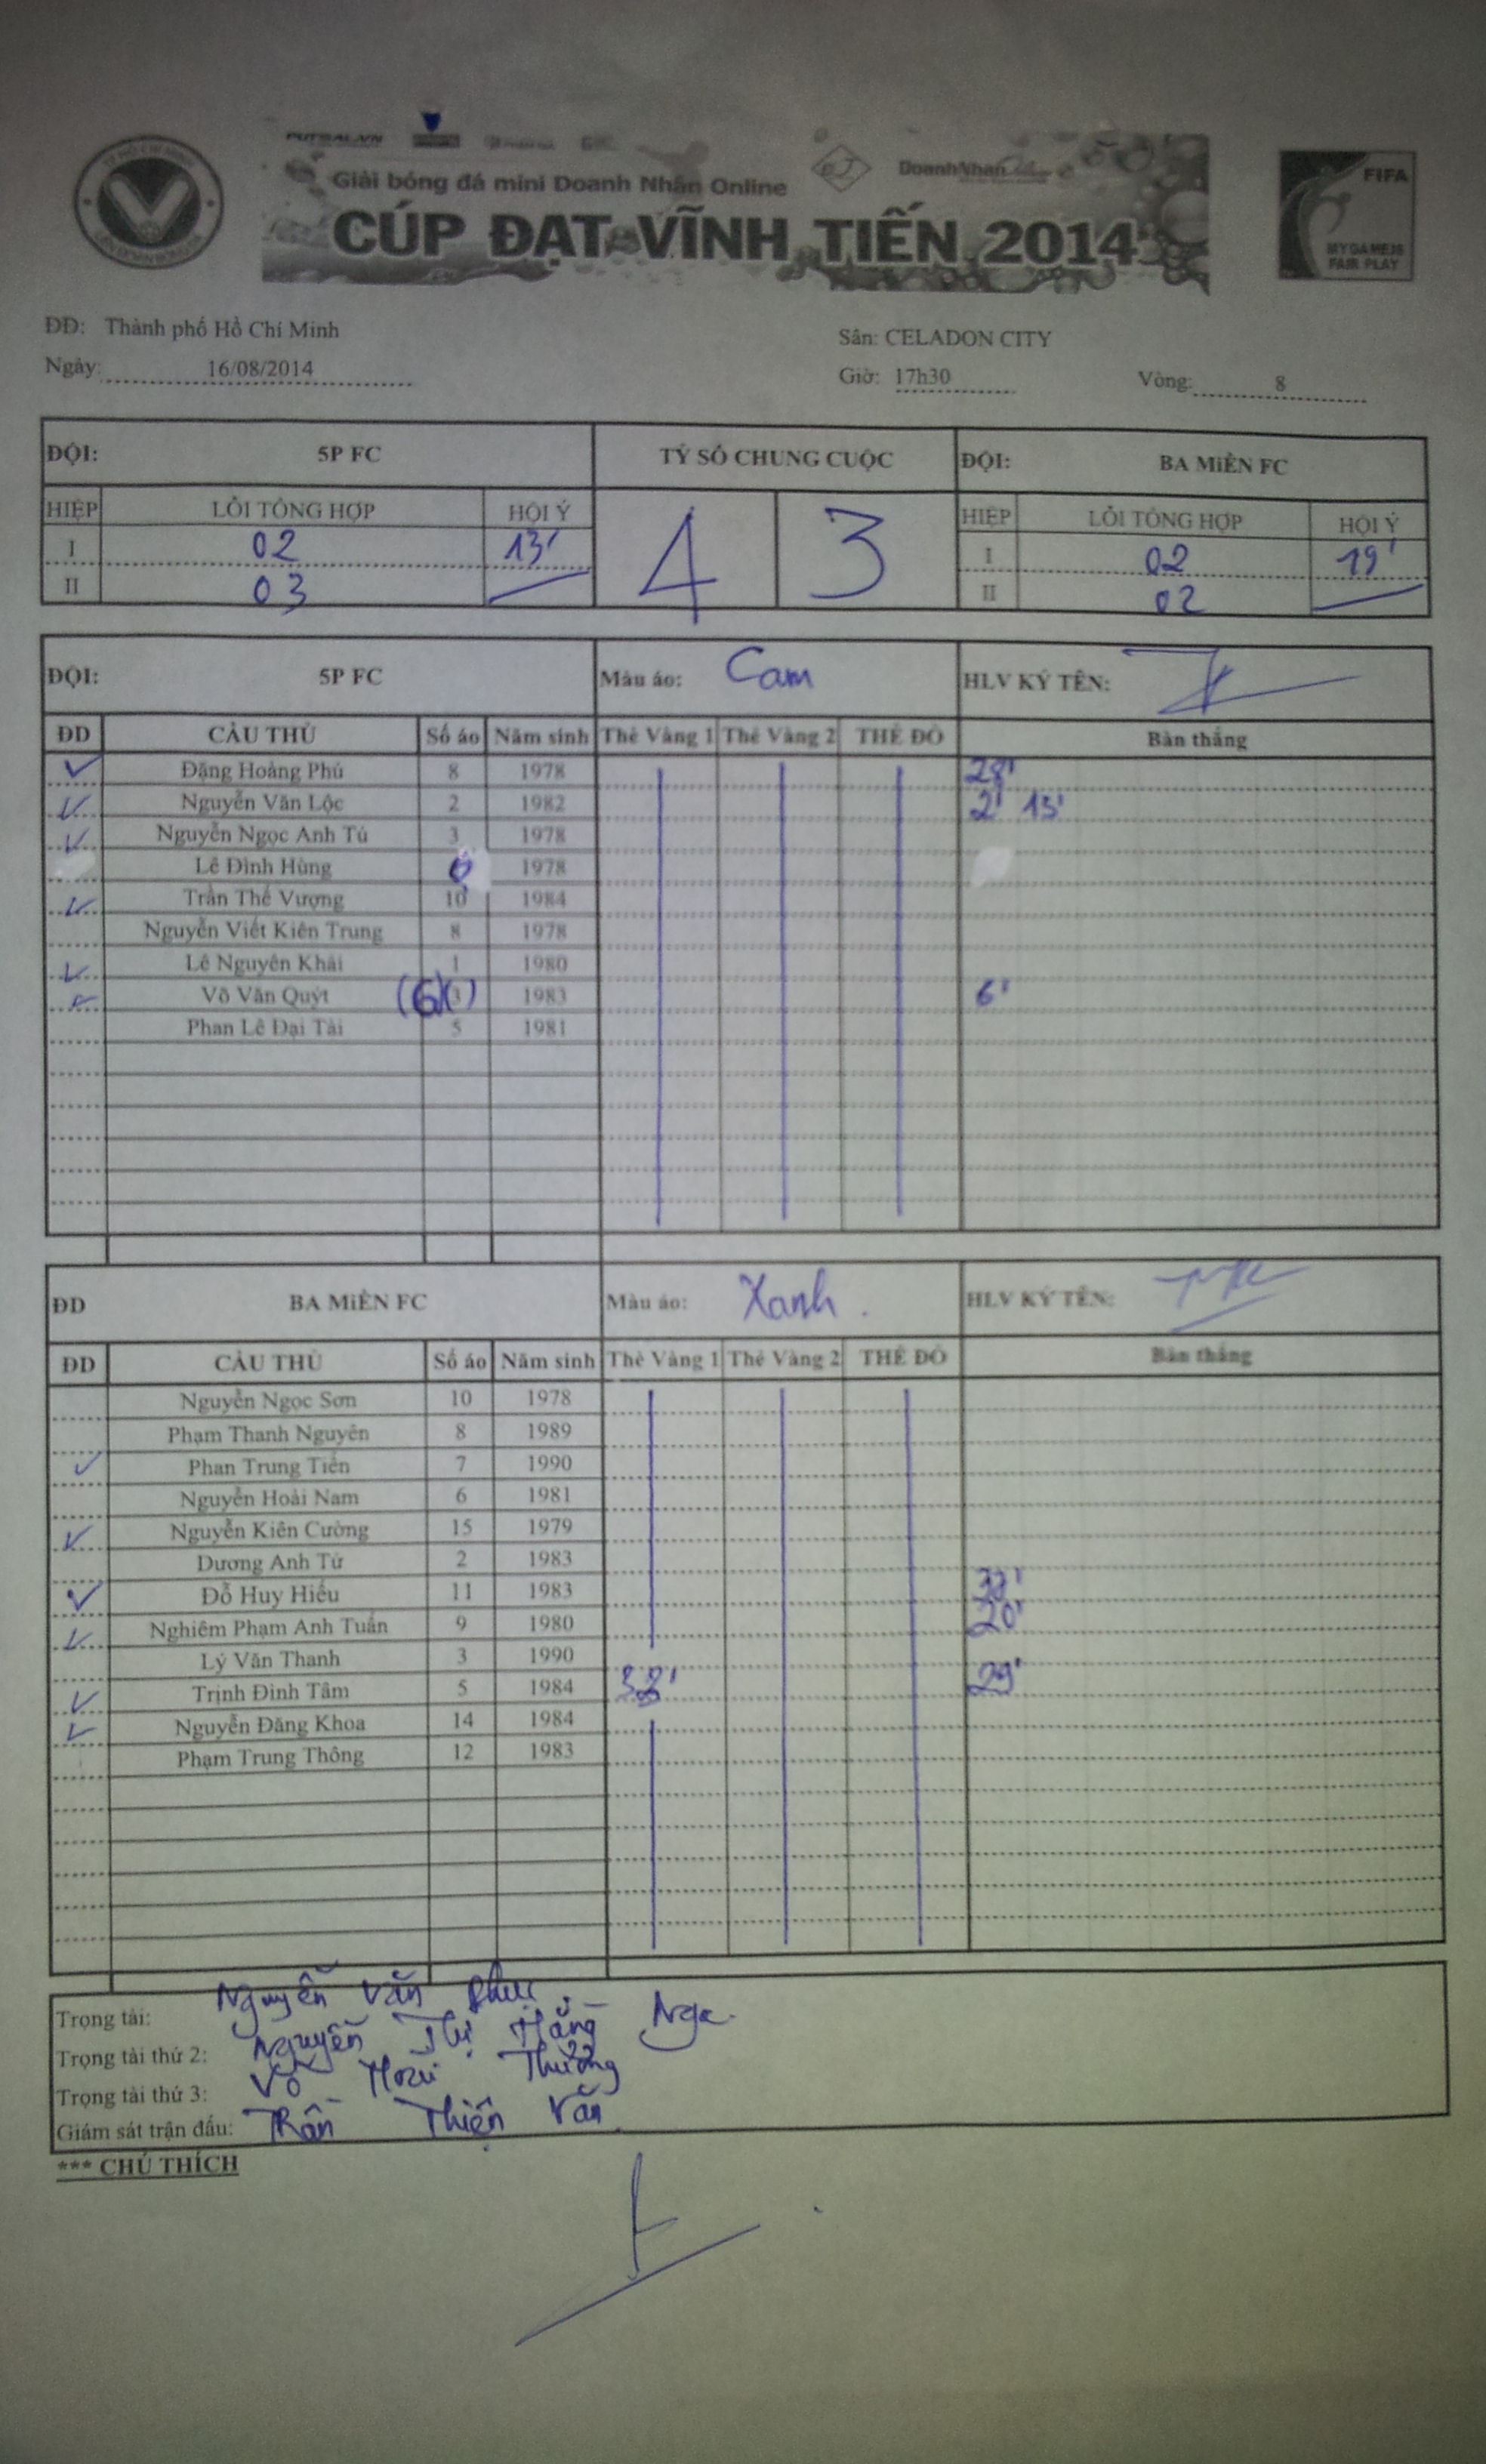 FUTSAL.VN
TP HỒ CHÍ MINH
Giải bóng đá mini Doanh Nhân Online
DoanhNhan
CÚP ĐẠT VĨNH TIẾN 2014
FIFA
MY GAME IS
FAIR PLAY
ĐĐ: Thành phố Hồ Chí Minh
Sân: CELADON CITY
Ngày: 16/08/2014
Giờ: 17h30 Vòng: 8
ĐỘI: 5P FC TỶ SỐ CHUNG CUỘC ĐỘI: BA MiỀN FC
HIỆP LỖI TỔNG HỢP HỘI Ý 4 3 HIỆP LỖI TỔNG HỢP HỘI Ý
I 02 13' I 02 19'
II 03 II 02
ĐỘI: 5P FC Màu áo: Cam HLV KÝ TÊN:
ĐD CẦU THỦ Số áo Năm sinh Thẻ Vàng 1 Thẻ Vàng 2 THẺ ĐỎ Bàn thắng
Đặng Hoàng Phú 8 1978 28'
Nguyễn Văn Lộc 2 1982 2' 13'
Nguyễn Ngọc Anh Tú 3 1978
Lê Đình Hùng 1978
Trần Thế Vượng 10 1984
Nguyễn Viết Kiên Trung 8 1978
Lê Nguyên Khải 1 1980
Võ Văn Quýt (6) 1983 6'
Phan Lê Đại Tài 5 1981
ĐD BA MiỀN FC Màu áo: Xanh. HLV KÝ TÊN:
ĐD CẦU THỦ Số áo Năm sinh Thẻ Vàng 1 Thẻ Vàng 2 THẺ ĐỎ Bàn thắng
Nguyễn Ngọc Sơn 10 1978
Phạm Thanh Nguyên 8 1989
Phan Trung Tiến 7 1990
Nguyễn Hoài Nam 6 1981
Nguyễn Kiên Cường 15 1979
Dương Anh Tứ 2 1983
Đỗ Huy Hiếu 11 1983
Nghiêm Phạm Anh Tuấn 9 1980 20'
Lý Văn Thanh 3 1990
Trịnh Đình Tâm 5 1984 38' 29'
Nguyễn Đăng Khoa 14 1984
Phạm Trung Thông 12 1983
Trọng tài: Nguyễn Văn Phục
Trọng tài thứ 2: Nguyễn Thị Hằng Nga
Trọng tài thứ 3: Võ Hoài Thương
Giám sát trận đấu: Trần Thiện Văn
*** CHÚ THÍCH